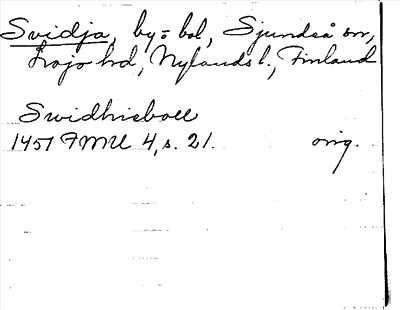 Svidja, by = bol, Sjundeå sn,
Lojo hd, Nylands l., Finland
Swidhieboll
1451 FMU 4, s. 21. orig.